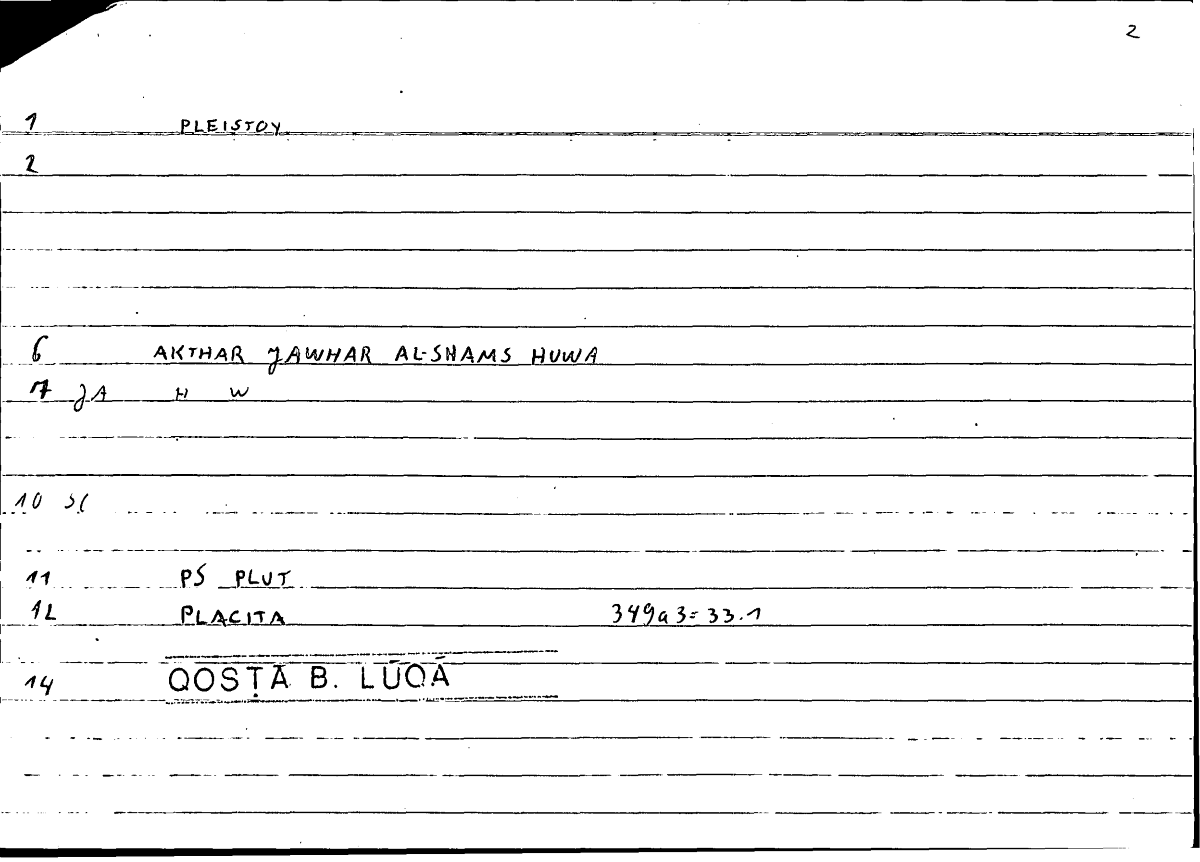 2
1 PLEISTOY
2
6 AKTHAR JAWHAR AL-SHAMS HUWA
7 JA H W
10
11 PS PLUT
12 PLACITA 349a3=33.1
14 QOSṬĀ B. LŪQĀ